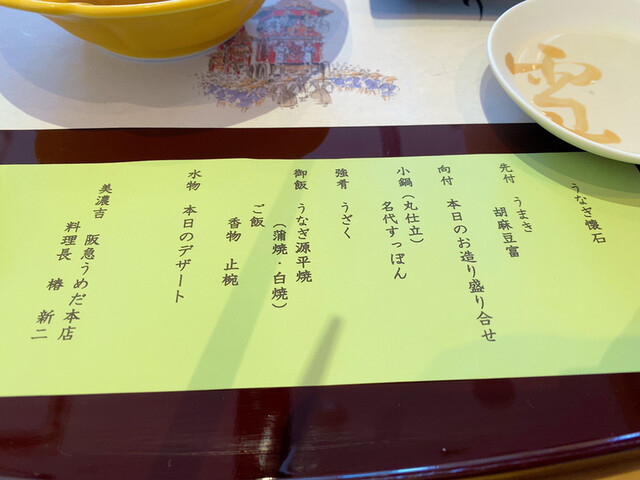 うなぎ懐石
先付 うまき
胡麻豆富
向付 本日のお造り盛り合せ
小鍋(丸仕立)
名代すっぽん
強肴 うざく
御飯 うなぎ源平焼
(蒲焼・白焼)
ご飯
香物 止椀
水物 本日のデザート
美濃吉 阪急うめだ本店
料理長 椿 新二